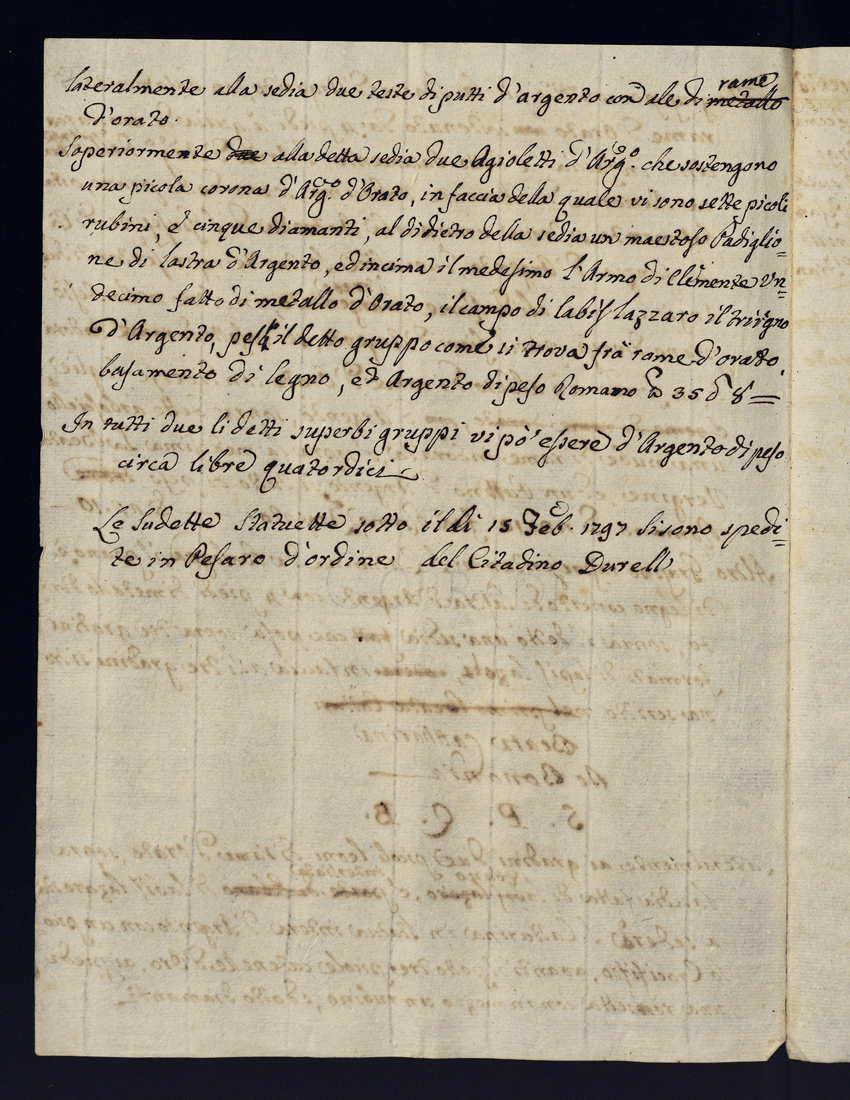 lateralmente alla sedia due teste di putti d'argento con ale di rame metallo
d'orato.
Soperiormente due alla detta sedia due Agioletti d'Arg.o che sostengono
una picola corona d'Arg.o d'Orato, in faccia della quale vi sono sette picoli
rubini, è cinque diamanti, al di dietro della sedia un maestoso Padiglio=
ne di lastra d'Argento, ed incima il medesimo l'Armo di Clemente Un=
decimo fatto di metallo d'Orato, il campo di labis lazzaro il triregno
d'Argento, il detto gruppo come si trova frà rame d'oratto,
basamento di legno, ed Argento di peso Romano 35 8 =
In tutti due li detti superbi gruppi vi pò essere d'Argento di peso
circa libre quatordici
Le Sudette Statuette sotto il dì 15 Feb. 1797 si sono spedi=
te in Pesaro d'ordine del Citadino Durell